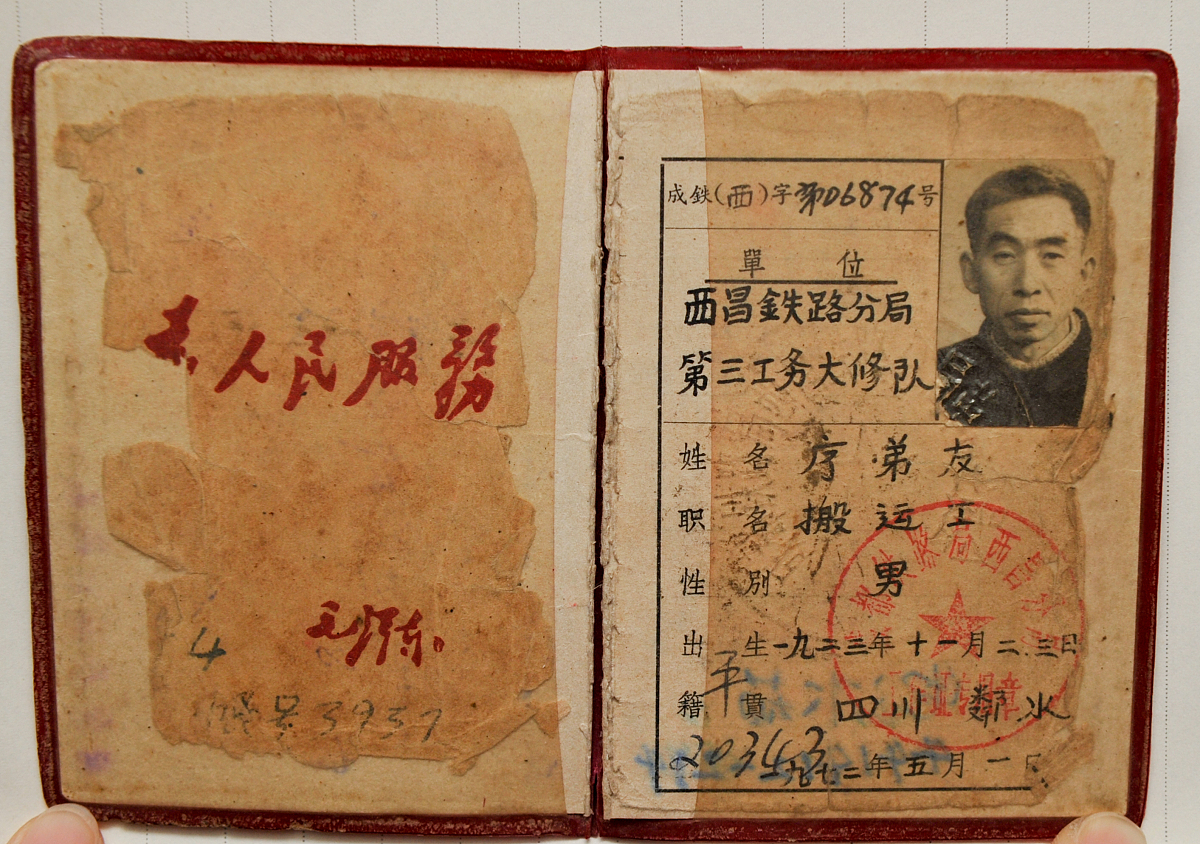 为人民服務
毛泽东
4
3937
成鉄(西)字第06874号
單 位
西昌鉄路分局
第三工务大修队
姓 名 弟友
职 名 搬运工
性 別 男
出 生 一九二三年十一月二.三日
籍 貫 四川 鄰水
平
203453
一九七二年五月一日
成都鉄路局西昌分局
工作证专用章